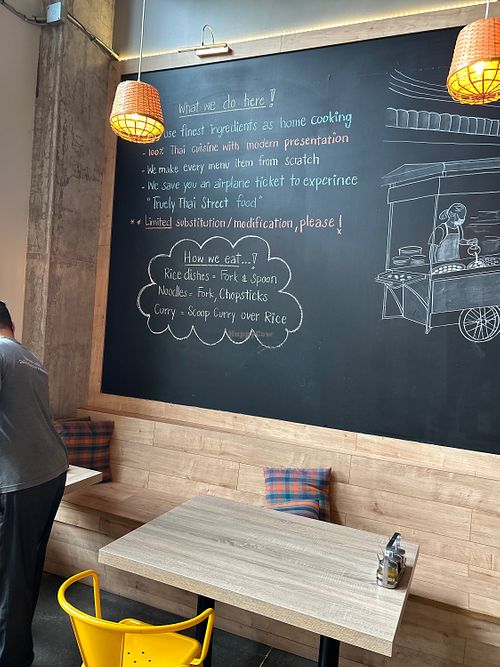 What we do here!
use finest ingredients as home cooking
- 100% Thai cuisine with modern presentation
- We make every menu item from scratch
- We save you an airplane ticket to experince
"Truely Thai Street food"
** Limited substitution/modification, please!
How we eat...?
Rice dishes = Fork & Spoon
Noodles = Fork, Chopsticks
Curry = Scoop Curry over Rice
HappyCow